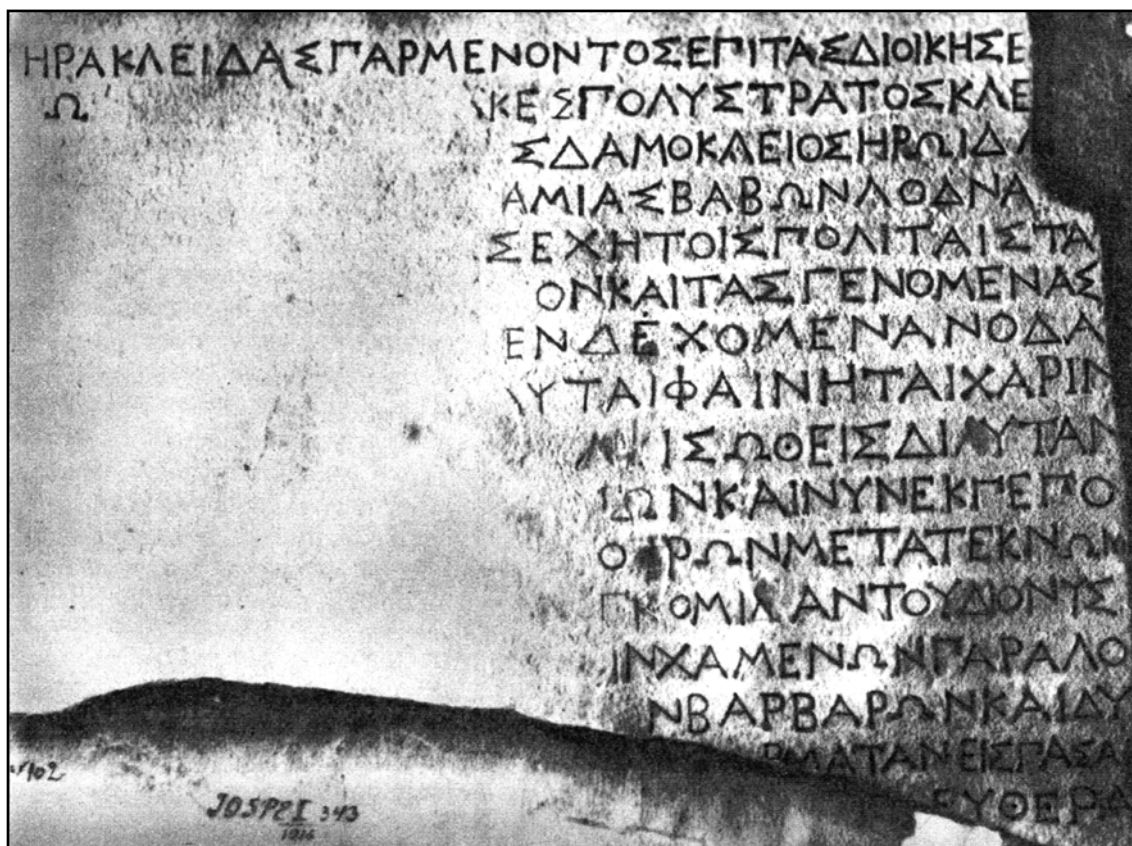 ΗΡΑΚΛΕΙΔΑΣΠΑΡΜΕΝΟΝΤΟΣΕΠΙΤΑΣΔΙΟΙΚΗΣΕ
Ω ΚΕΣΠΟΛΥΣΤΡΑΤΟΣΚΛΕ
ΣΔΑΜΟΚΛΕΙΟΣΗΡΩΙΔΑ
ΑΜΙΑΣΒΑΒΩΝΛΟΔΝΑ
ΣΕΧΗΤΟΙΣΠΟΛΙΤΑΙΣΤΑ
ΟΝΚΑΙΤΑΣΓΕΝΟΜΕΝΑΣ
ΕΝΔΕΧΟΜΕΝΑΝΟΔΑ
ΥΤΑΙΦΑΙΝΗΤΑΙΧΑΡΙΝ
ΙΣΩΘΕΙΣΔΙΑΥΤΑΝ
ΩΝΚΑΙΝΥΝΕΚΠΕΠΟ
Ο ΡΩΝΜΕΤΑΤΕΚΝΩΝ
ΚΟΜΙΔΑΝΤΟΥΔΙΟΝΥΣ
ΝΧΑΜΕΝΩΝΠΑΡΑΛΟ
ΝΒΑΡΒΑΡΩΝΚΑΙΔΥ
ΡΜΑΤΑΝΕΙΣΠΑΣΑ
ΕΥΘΕΡΑ
JOSPE I 343
1916